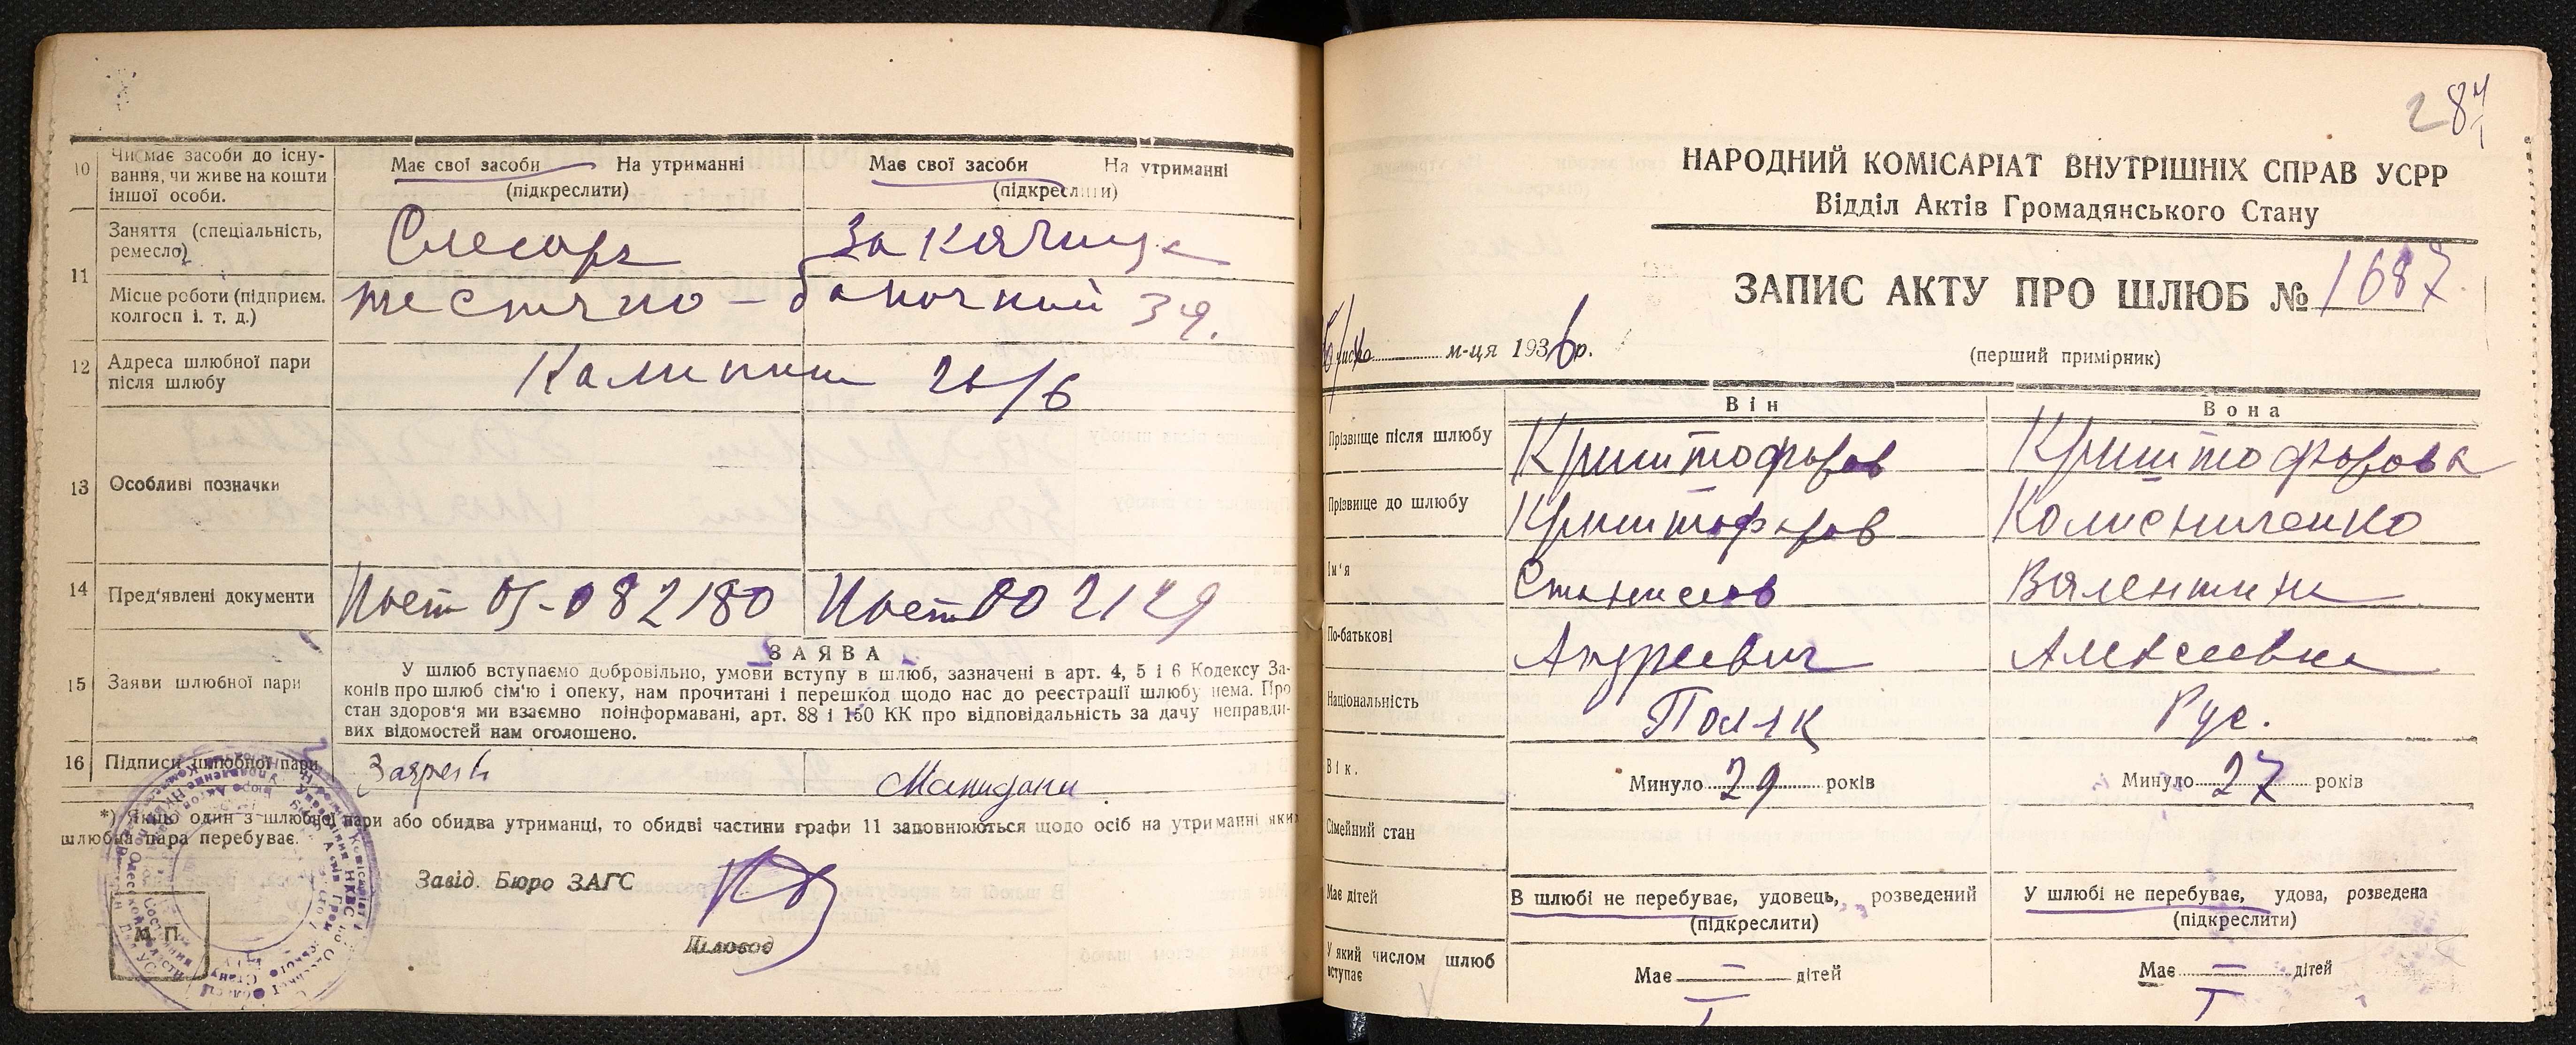 10 Чи має засоби до існу-
вання, чи живе на кошти
іншої особи.
Має свої засоби На утриманні
(підкреслити)
Має свої засоби На утриманні
(підкреслити)
11 Заняття (спеціальність,
ремесло)
Слесарь
Закатчица
Місце роботи (підприєм.
колгосп і. т. д.)
жестяно - баночный
12 Адреса шлюбної пари
після шлюбу
13 Особливі позначки
14 Пред'явлені документи
15 Заяви шлюбної пари
ЗАЯВА
У шлюб вступаємо добровільно, умови вступу в шлюб, зазначені в арт. 4, 5 і 6 Кодексу За-
конів про шлюб сім'ю і опеку, нам прочитані і перешкод щодо нас до реєстрації шлюбу нема. Про
стан здоров'я ми взаємно поінформавані, арт. 88 і 150 КК про відповідальність за дачу неправди-
вих відомостей нам оголошено.
16 Підписи шлюбної пари
*) Якщо один з шлюбної пари або обидва утриманці, то обидві частини графи 11 заповнюються щодо осіб на утриманні яких
шлюбна пара перебуває.
Завід. Бюро ЗАГС
Діловод
М П
284
НАРОДНИЙ КОМІСАРІАТ ВНУТРІШНІХ СПРАВ УСРР
Відділ Актів Громадянського Стану
ЗАПИС АКТУ ПРО ШЛЮБ № 1687
м-ця 1936 р.
(перший примірник)
Він
Вона
Прізвище після шлюбу
Криштофоров
Криштофорова
Прізвище до шлюбу
Криштофоров
Колисниченко
Ім'я
Станислав
Валентина
По-батькові
Андреевич
Алексеевна
Національність
Поляк
Рус.
Вік.
Минуло 29 років
Минуло 27 років
Сімейний стан
Має дітей
В шлюбі не перебуває, удовець, розведений
(підкреслити)
У шлюбі не перебуває, удова, розведена
(підкреслити)
У який числом шлюб
вступає
Має — дітей
Має — дітей
I
I